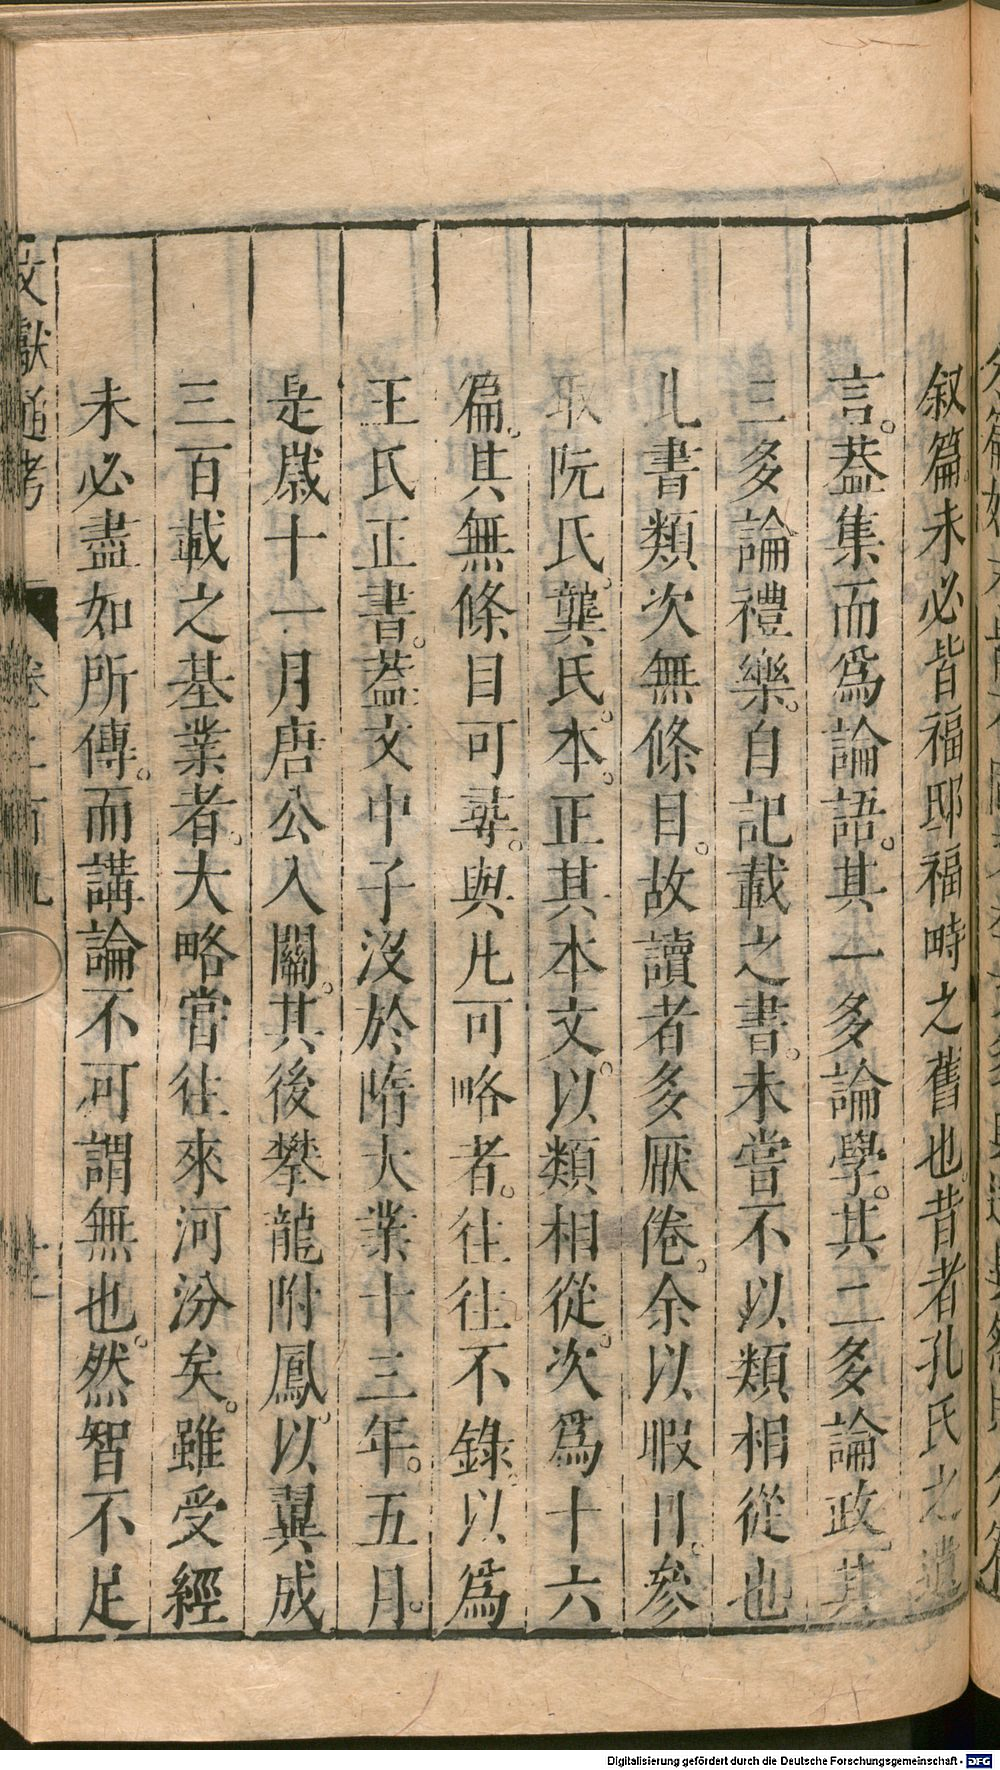 叙篇未必皆福邸福畤之舊也。昔者孔氏之遺
言。葢集而爲論語。其一多論學。其二多論政。其
三多論禮樂。自記載之書。未嘗不以類相從也
此書類次無條目。故讀者多厭倦。余以暇日。參
取阮氏。龔氏。本。正其本文。以類相從。次爲十六
篇。其無條目可尋。與凡可略者。往往不錄。以爲
王氏正書。葢文中子沒於隋大業十三年。五月。
是歲十一月唐公入關。其後攀龍附鳳。以翼成
三百載之基業者。大略嘗往來河汾矣。雖受經
未必盡如所傳。而講論不可謂無也。然智不足
文獻通考
Digitalisierung gefördert durch die Deutsche Forschungsgemeinschaft - DFG